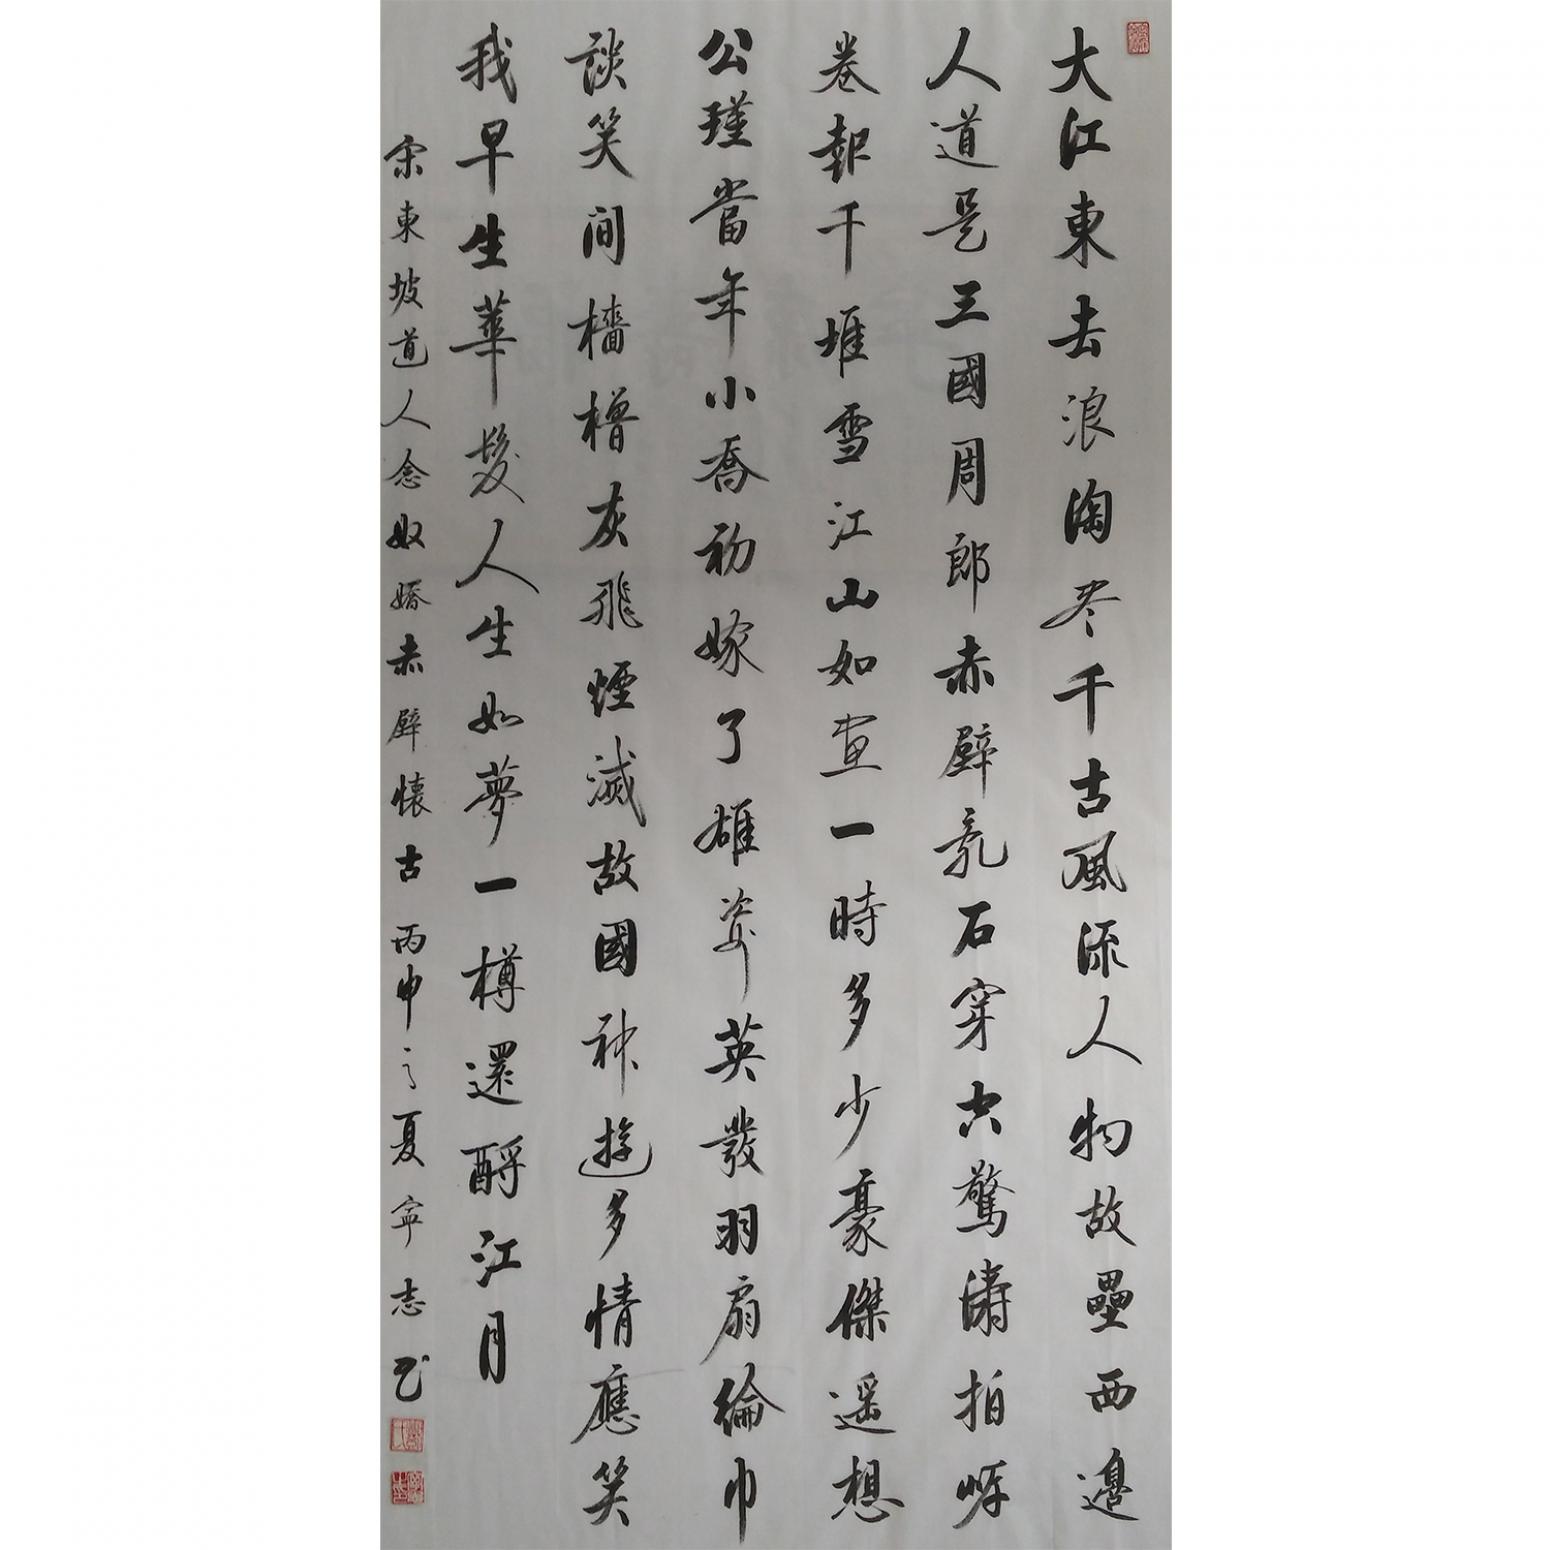 大江東去浪淘尽千古風流人物故壘西邊
人道是三國周郎赤壁乱石穿空驚涛拍岸
卷起千堆雪江山如畫一時多少豪傑遥想
公瑾當年小喬初嫁了雄姿英發羽扇綸巾
談笑间檣櫓灰飛煙滅故國神遊多情應笑
我早生華髮人生如夢一樽還酹江月
宋東坡道人念奴嬌赤壁懷古丙申之夏宁志书